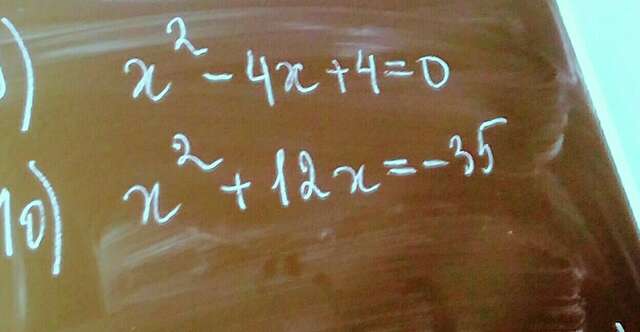 ) x² - 4x + 4 = 0
10) x² + 12x = -35